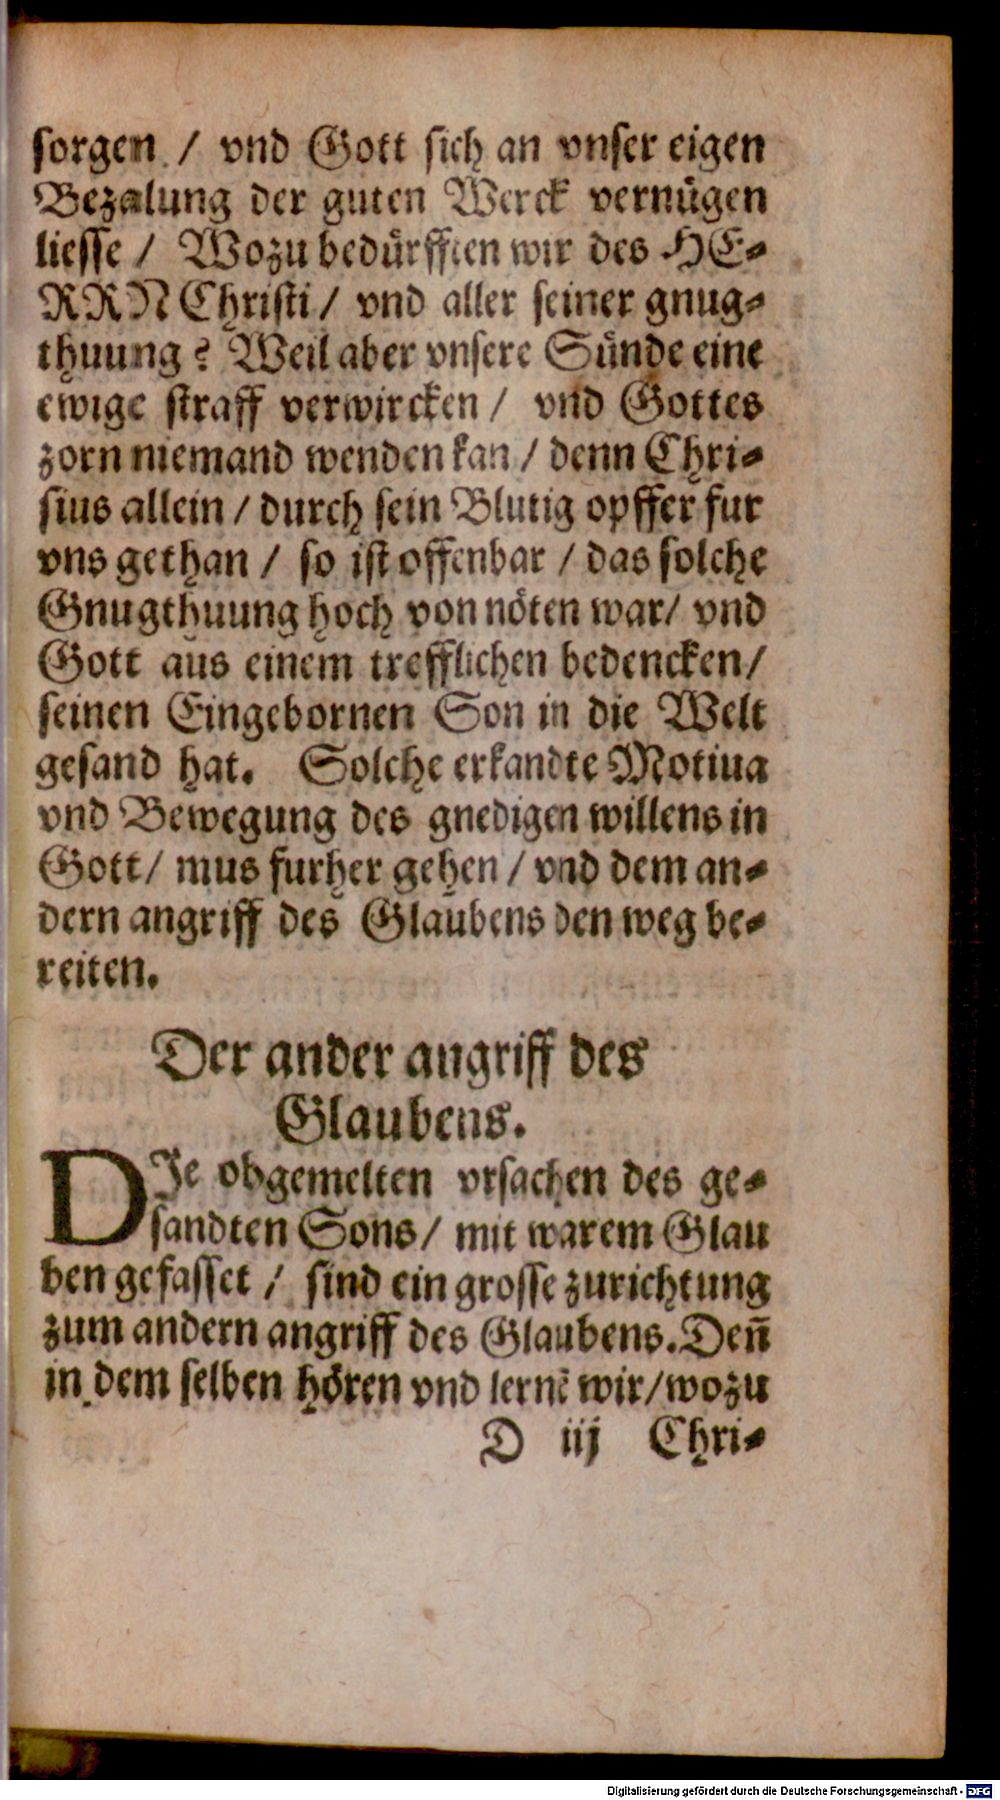 sorgen / vnd Gott sich an vnser eigen
Bezalung der guten Werck vernügen
liesse / Wozu bedürfften wir des HE-
RRN Christi / vnd aller seiner gnug-
thuung? Weil aber vnsere Sünde eine
ewige straff verwircken / vnd Gottes
zorn niemand wenden kan / denn Chri-
stus allein / durch sein Blutig opffer fur
vns gethan / so ist offenbar / das solche
Gnugthuung hoch von nöten war / vnd
Gott aus einem trefflichen bedencken /
seinen Eingebornen Son in die Welt
gesand hat. Solche erkandte Motiua
vnd Bewegung des gnedigen willens in
Gott / mus furher gehen / vnd dem an-
dern angriff des Glaubens den weg be-
reiten.
Der ander angriff des
Glaubens.
DIe obgemelten vrsachen des ge-
sandten Sons / mit warem Glau
ben gefasset / sind ein grosse zurichtung
zum andern angriff des Glaubens. Deñ
in dem selben hören vnd lernẽ wir / wozu
D iij Chri-
Digitalisierung gefördert durch die Deutsche Forschungsgemeinschaft - DFG